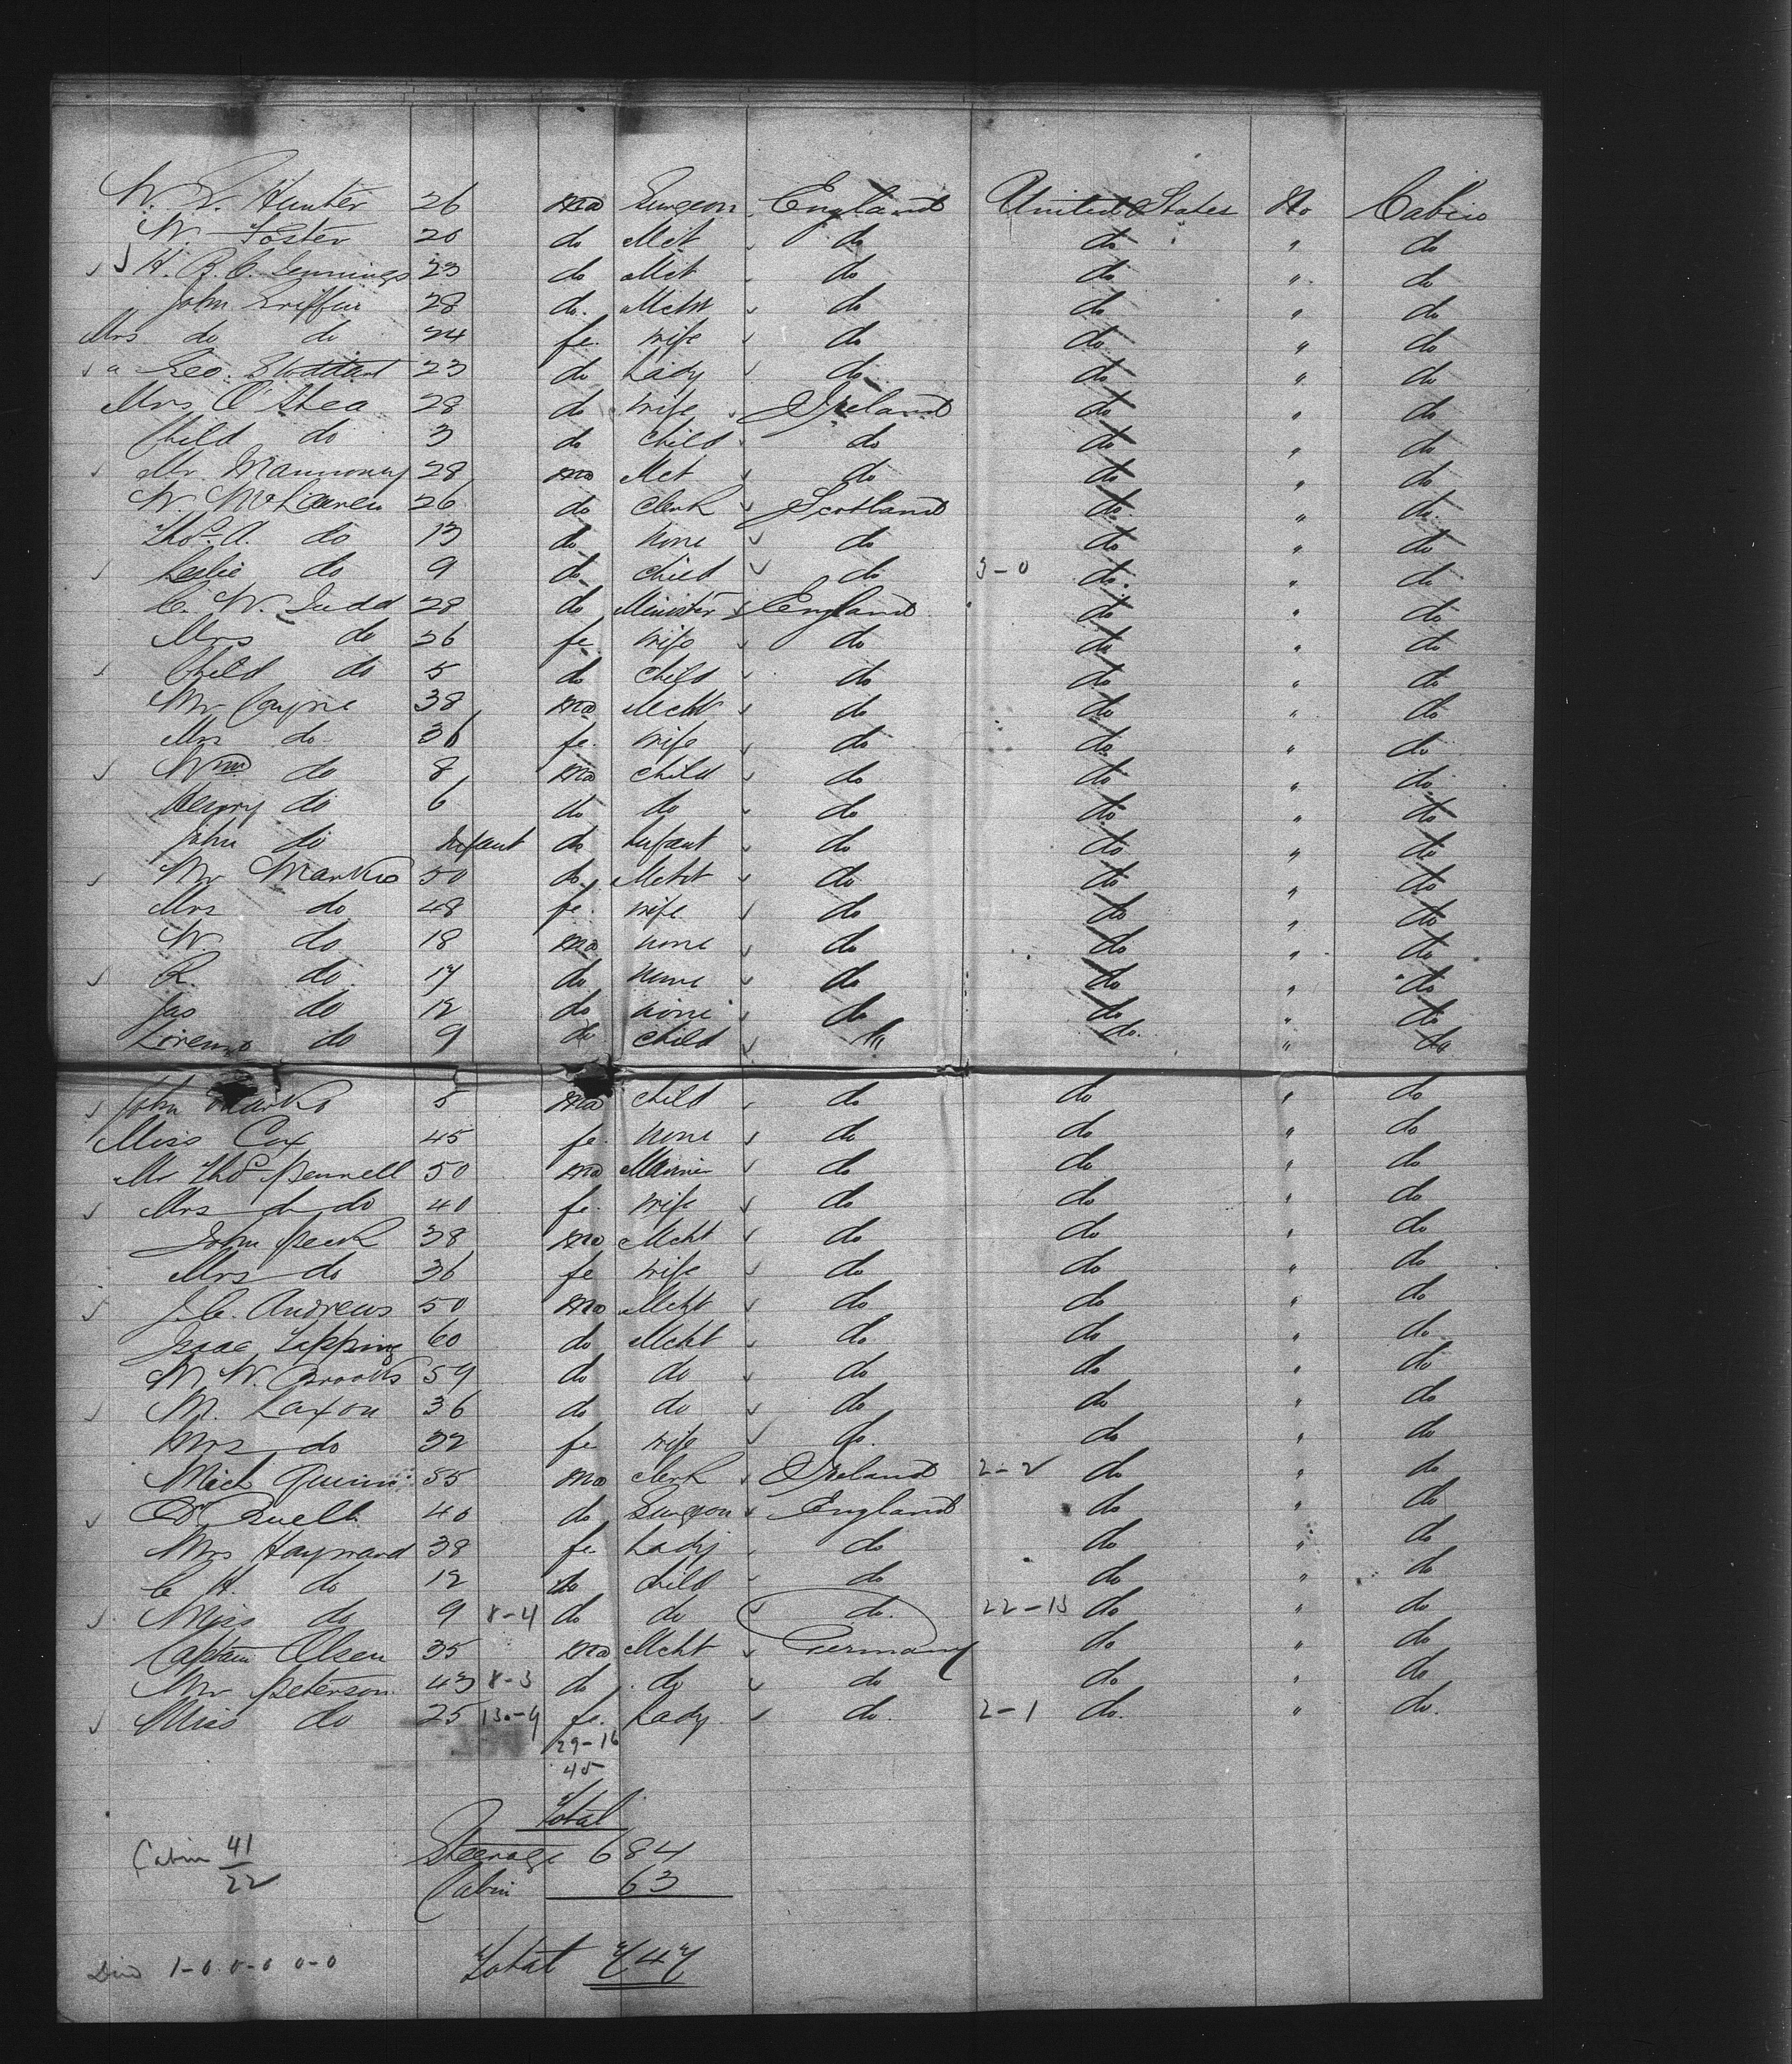 W. L. Hunter 26 ma Surgeon England United States No Cabin
W. Foster 20 do Mct do do " do
H. B. C. Jennings 23 do Mct do do " do
John Griffin 28 do. Mcht do do " do
Mrs do do 24 fe. wife do do " do
Geo. Stoddard 23 do Lady do do " do
Mrs O'Shea 28 do wife Ireland do " do
Child do 3 do child do do " do
Mr. 28 ma Mct do do " do
W. McLaren 26 do clerk Scotland do " do
Thos. A. do 13 do none do do " do
Leslie do 9 do child do 3-0 do " do
C. W. Judd 28 do Minister England do " do
Mrs do 26 fe wife do do " do
Child do 5 do child do do " do
Mr Payne 38 ma Mcht do do " do
Mrs do 36 fe. wife do do " do
Wm do 8 ma child do do " do
Henry do 6 do do do do " do
John do Infant do Infant do do " do
Mr Marks 50 do Mcht do do " do
Mrs do 48 fe. wife do do " do
W. do 18 ma none do do " do
R. do 17 do none do do " do
Jas do 12 do none do do " do
Lorenzo do 9 do child do do " do
John Marks 5 ma child do do " do
Miss Cox 45 fe. none do do " do
Mr Thos Pennell 50 ma do do " do
Mrs do do 40 fe. wife do do " do
John Peek 38 ma Mcht do do " do
Mrs do 36 fe wife do do " do
J. C. Andrews 50 ma Mcht do do " do
Isaac Tipping 60 do Mcht do do " do
M W. Brooks 59 do do do do " do
M. Laxon 36 do do do do " do
Mrs do 32 fe wife do. do " do
Mich Quinn 55 ma clerk Ireland 2-2 do " do
Dr Buell 40 do Surgeon England do " do
Mrs Hayward 38 fe. Lady do do " do
C H. do 12 do child do do " do
Miss do 9 8-4 do do do. 22-13 do " do
Captain Olsen 35 ma Mcht Germany do " do
Mr Peterson 43 8-3 do do do do " do
Miss do 25 13-9 fe. Lady do. 2-1 do. " do.
29-16
45
Total
Steerage 684
Cabin 63
Cabin 41
22
Total 747
Died 1-0 0-0 0-0